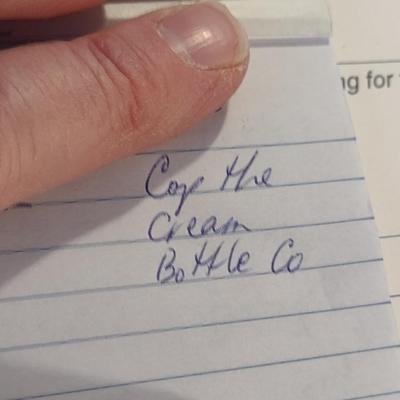 ng for
Cap the
Cream
Bottle Co